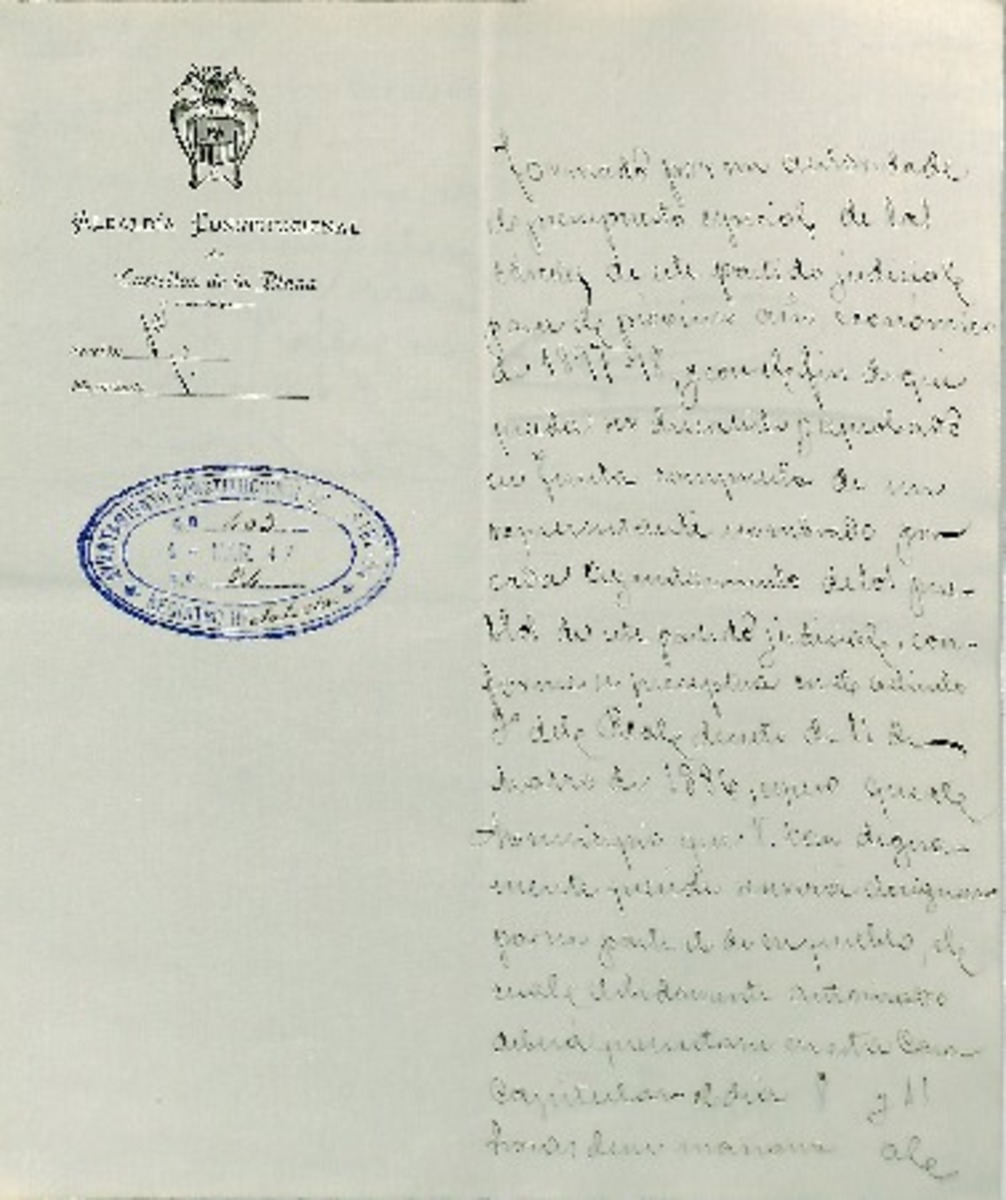 Alcaldía Constitucional
de
Castellon de la Plana
AYUNTAMIENTO CONSTITUCIONAL
403
4 - MAR 97
REGISTRO
Formado por mi autoridad el
presupuesto especial de las
de este partido judicial
para el próximo año económico
de 1897-98, y con el fin de que
pueda ser discutido y aprobado
en Junta compuesta de un
representante nombrado por
cada Ayuntamiento de los pue-
blos de este partido judicial, con-
forme se preceptua en el artículo
3º del Real decreto de 11 de
Marzo de 1886, espero que el
Municipio que V. tan digna-
mente preside se servirá designar
por su parte el de su pueblo, el
cual debidamente autorizado
deberá presentarse en esta Casa
Capitular el día y 11
horas de su mañana al